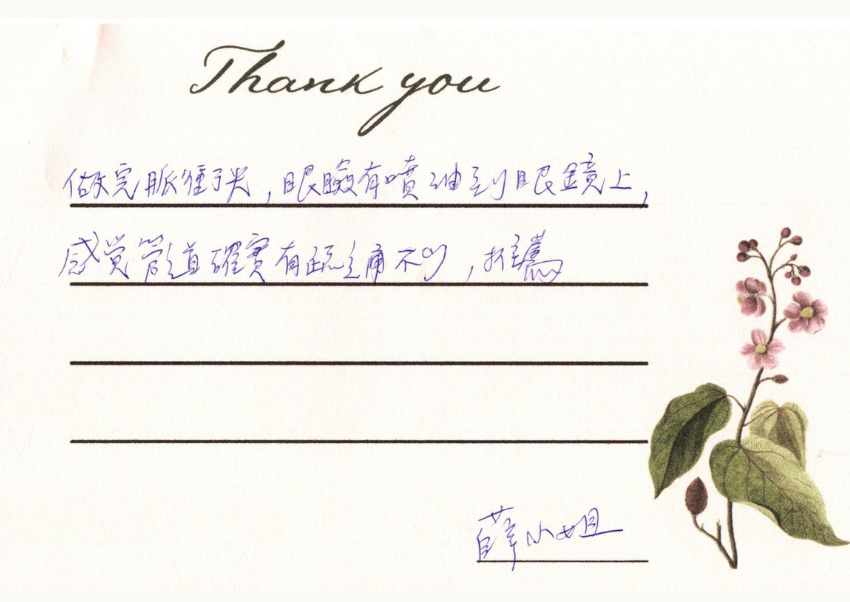 Thank you
做完脈衝光，眼瞼有噴油到眼鏡上，
感觉管道確實有疏通不少，推薦
薛小姐